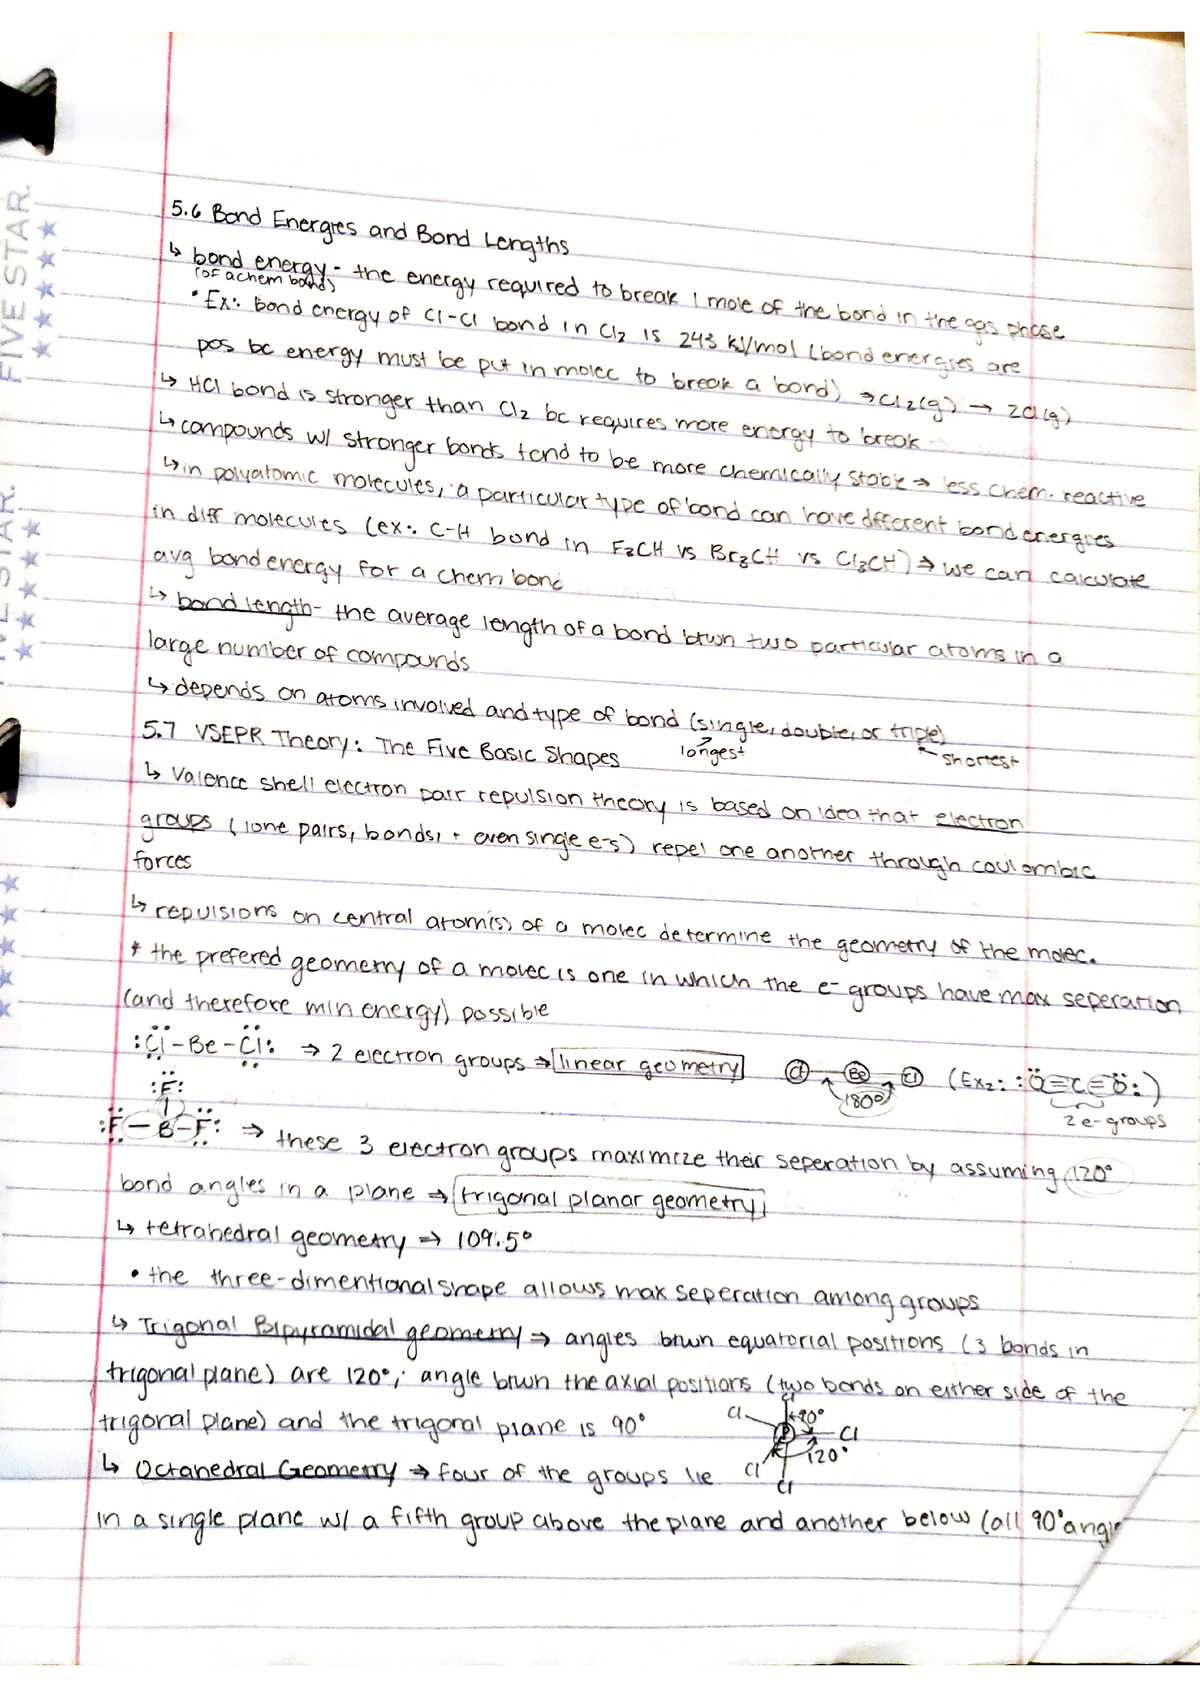 FIVE STAR.
5.6 Bond Energies and Bond Lengths
↳ bond energy - the energy required to break 1 mole of the bond in the gas phase
(of a chem bond)
• Ex: bond energy of Cl-Cl bond in Cl2 is 243 kJ/mol (bond energies are
pos bc energy must be put in molec to break a bond) → Cl2(g) → 2Cl(g)
↳ HCl bond is stronger than Cl2 bc requires more energy to break
↳ compounds w/ stronger bonds tend to be more chemically stable → less chem. reactive
↳ in polyatomic molecules, a particular type of bond can have different bond energies
in diff molecules (ex: C-H bond in F3CH vs Br3CH vs Cl3CH) → we can calculate
avg bond energy for a chem bond
↳ bond length - the average length of a bond btwn two particular atoms in a
large number of compounds
↳ depends on atoms involved and type of bond (single, double, or triple)
longest
shortest
5.7 VSEPR Theory: The Five Basic Shapes
↳ Valence shell electron pair repulsion theory is based on idea that electron
groups (lone pairs, bonds, + even single e-s) repel one another through coulombic
forces
↳ repulsions on central atom(s) of a molec determine the geometry of the molec.
* the prefered geometry of a molec is one in which the e- groups have max seperation
(and therefore min energy) possible
:Cl-Be-Cl: → 2 electron groups → linear geometry Cl Be Cl (Ex2: :O=C=O:)
180°
2 e- groups
:F:
:F-B-F: → these 3 electron groups maximize their seperation by assuming 120°
bond angles in a plane → trigonal planar geometry
↳ tetrahedral geometry → 109.5°
• the three-dimentional shape allows max seperation among groups
↳ Trigonal Bipyramidal geometry → angles btwn equatorial positions (3 bonds in
trigonal plane) are 120°; angle btwn the axial positions (two bonds on either side of the
trigonal plane) and the trigonal plane is 90°
Cl
Cl
90°
P
Cl
120°
Cl
Cl
↳ Octahedral Geometry → four of the groups lie
in a single plane w/ a fifth group above the plane and another below (all 90°